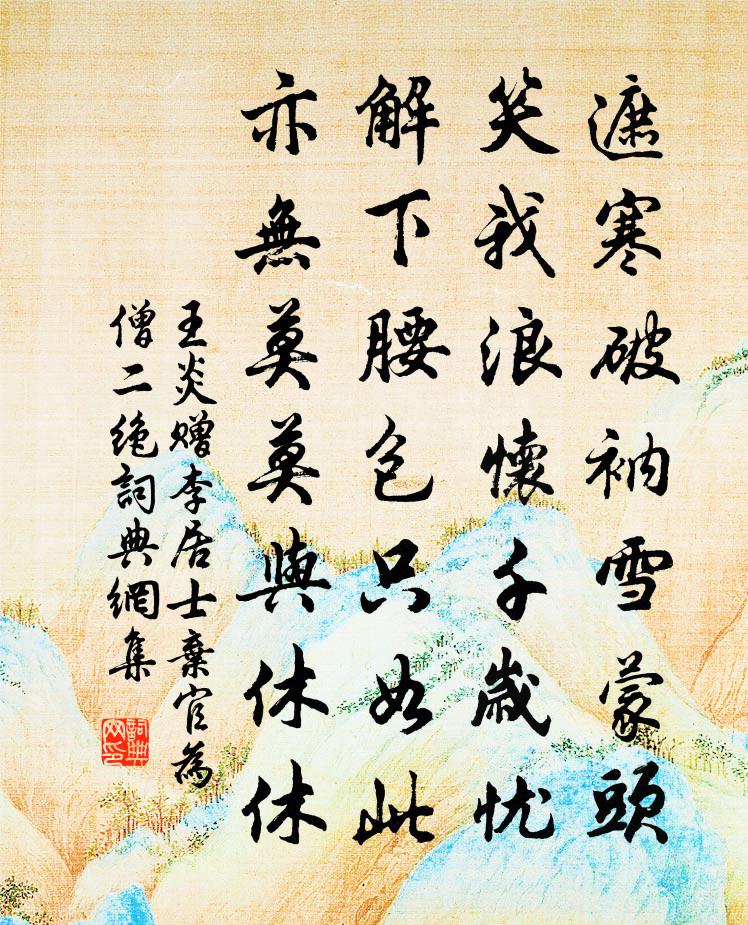 遮寒破衲雪蒙頭
笑我浪懷千歲忧
解下腰包只如此
亦無莫莫與休休
王炎贈李居士棄官為
僧二绝詞典網集
詞典网印